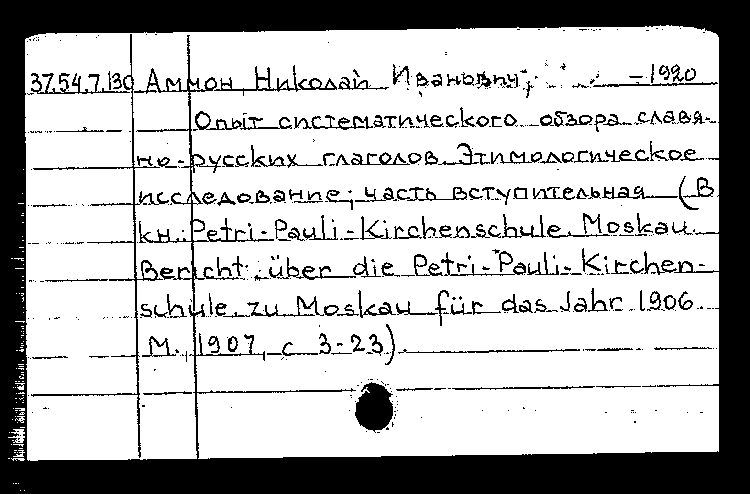 37.54.7.130 Аммон, Николай Иванович, – 1920
Опыт систематического обзора славя-
но-русских глаголов. Этимологическое
исследование; часть вступительная (В
кн.: Petri-Pauli-Kirchenschule. Moskau.
Bericht über die Petri-Pauli-Kirchen-
schule zu Moskau für das Jahr 1906.
М., 1907, с 3-23).